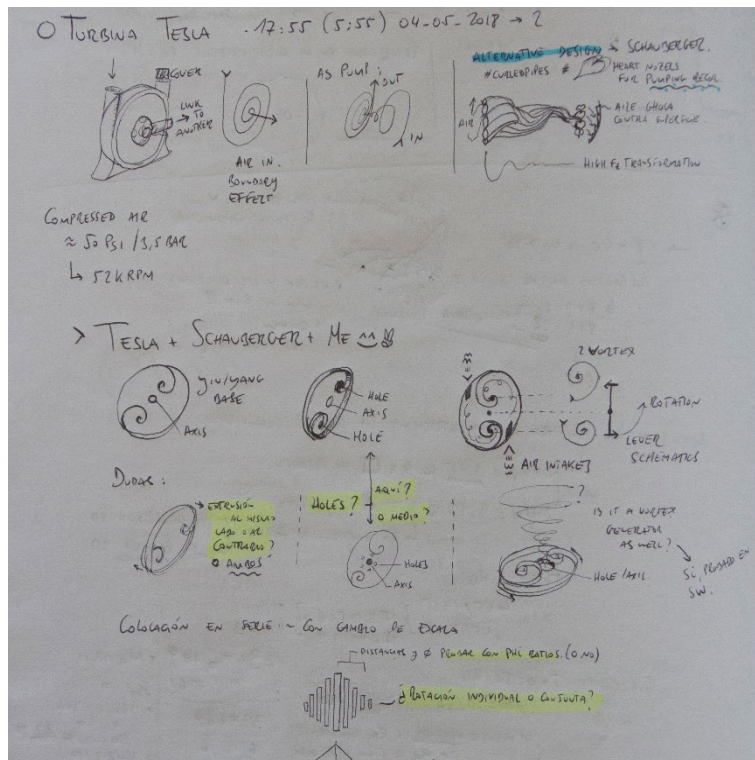 O TURBINA TESLA · 17:55 (5:55) 04-05-2018 → 2
COVER
LINK
TO
ANOTHER
AIR IN.
BOUNDARY
EFFECT
AS PUMP:
OUT
IN
ALTERNATIVE DESIGN → SCHAUBERGER.
#CURLEDPIPES #
HEART NOZELS
FOR PUMPING REGUL.
AIR
AIRE CHOCA
CONTRA SUPERFICIE
HIGH Fz TRANSFORMATION
COMPRESSED AIR
≈ 50 PSI / 3,5 BAR
↳ 52K RPM
> TESLA + SCHAUBERGER + ME
YIN/YANG
BASE
AXIS
HOLE
AXIS
HOLE
2 VORTEX
ROTATION
LEVER
SCHEMATICS
AIR INTAKES
DUDAS:
→ EXTRUSIÓN
AL MISMO
LADO O AL
CONTRARIO?
O AMBOS?
HOLES?
AQUÍ?
O MEDIO?
HOLES
AXIS
?
IS IT A VORTEX
GENERATOR
AS WELL?
HOLE/AXIS.
SI, PROBADO EN
SW.
COLOCACIÓN EN SERIE ~ CON CAMBIO DE ESCALA
DISTANCIAS y Ø PENSAR CON PHI RATIOS. (O NO)
¿ROTACIÓN INDIVIDUAL O CONJUNTA?